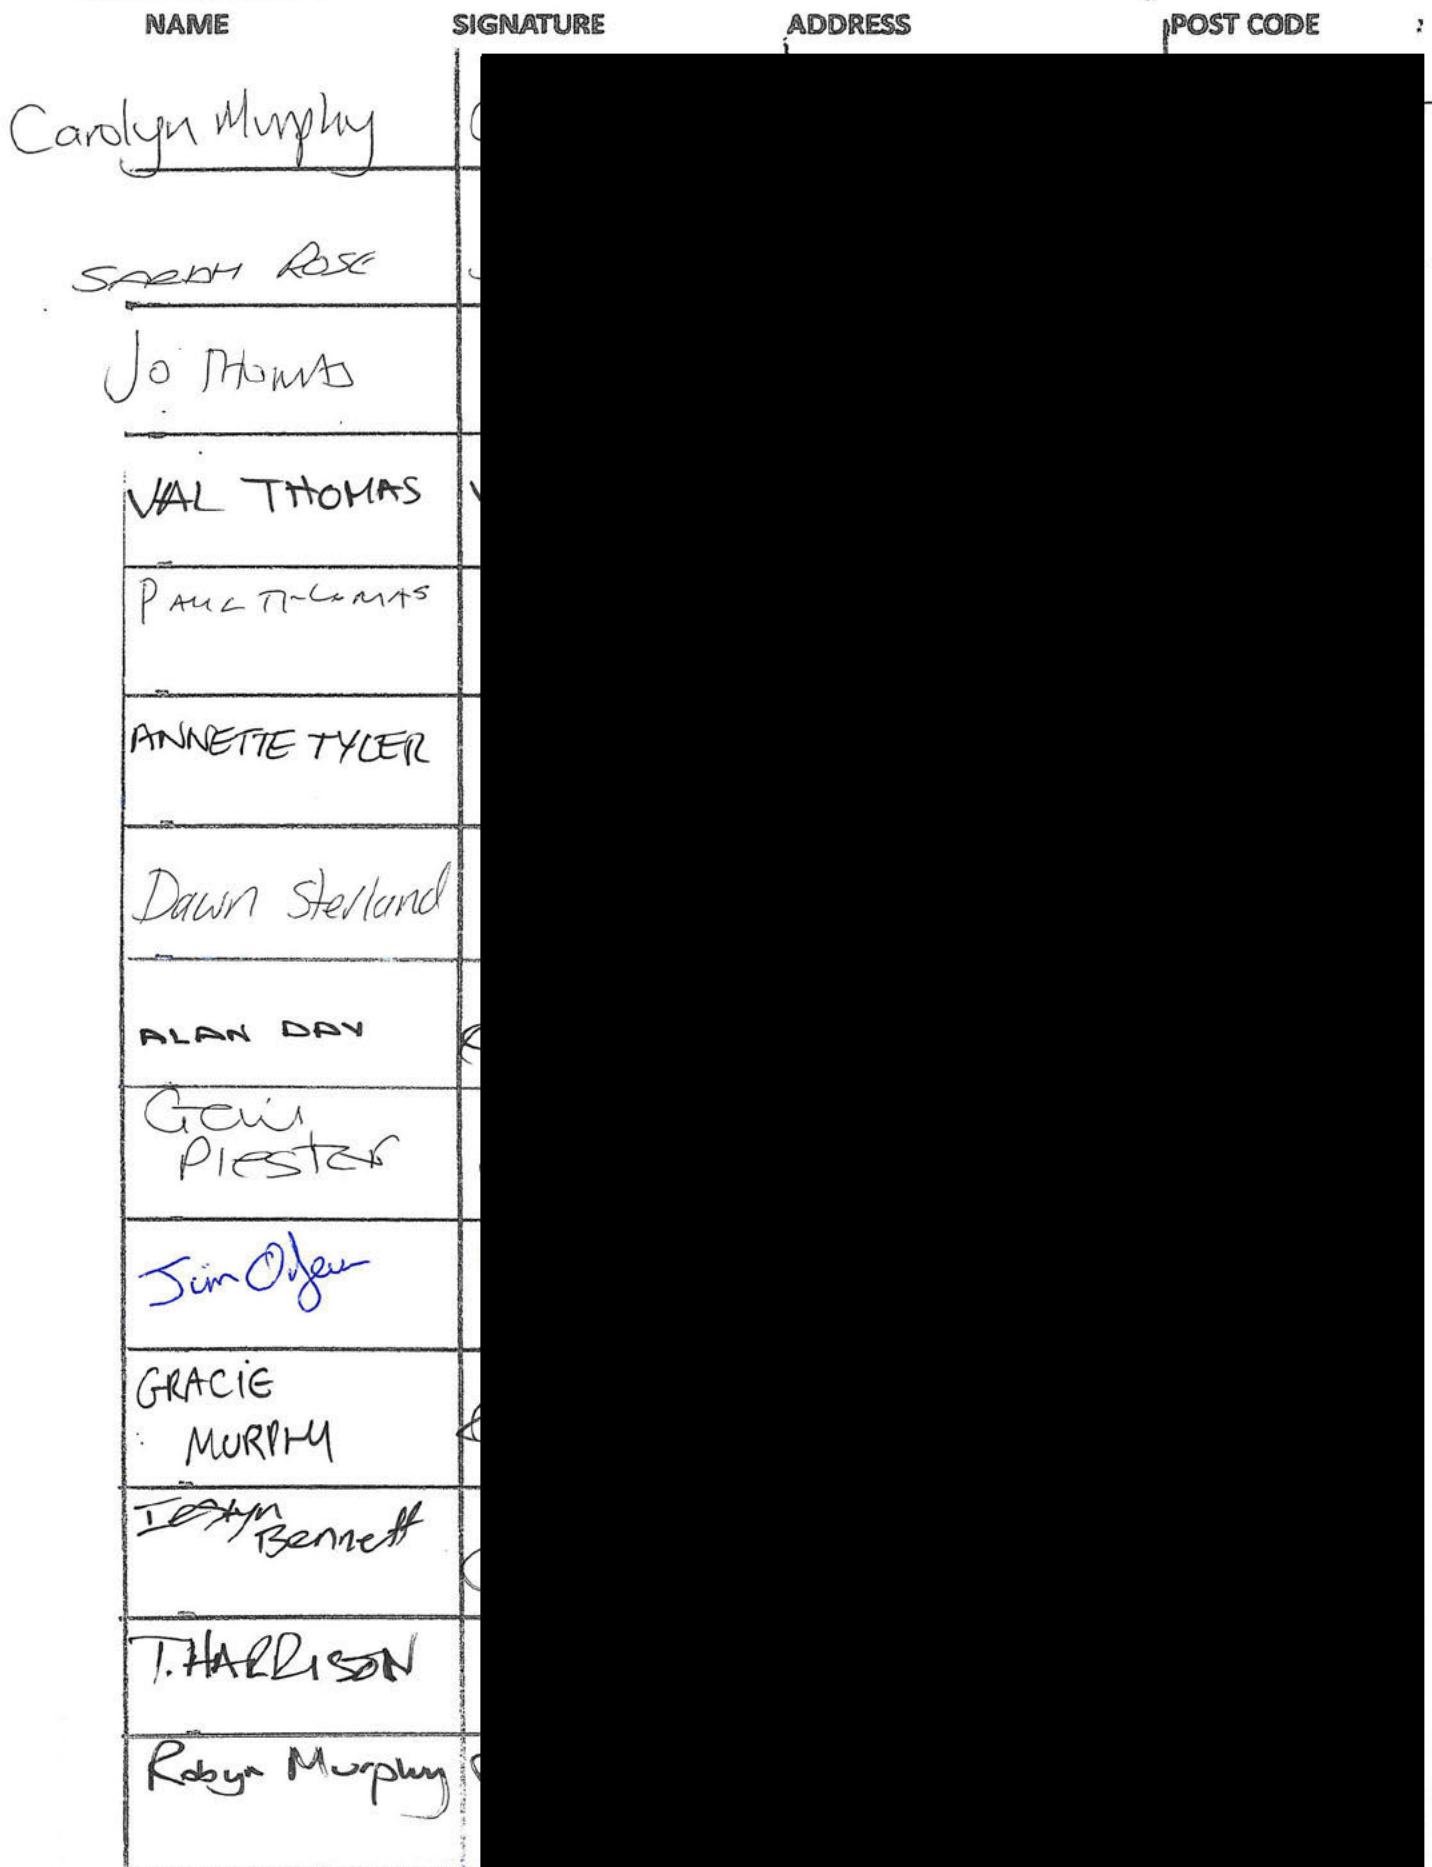 NAME SIGNATURE ADDRESS POST CODE
Carolyn Murphy
SARAH ROSE
Jo THOMAS
VAL THOMAS
PAUL THOMAS
ANNETTE TYLER
Dawn Sterland
ALAN DAY
PIESTER
Jim
GRACIE
MURPHY
Iestyn
Bennett
T. HARRISON
Robyn Murphy